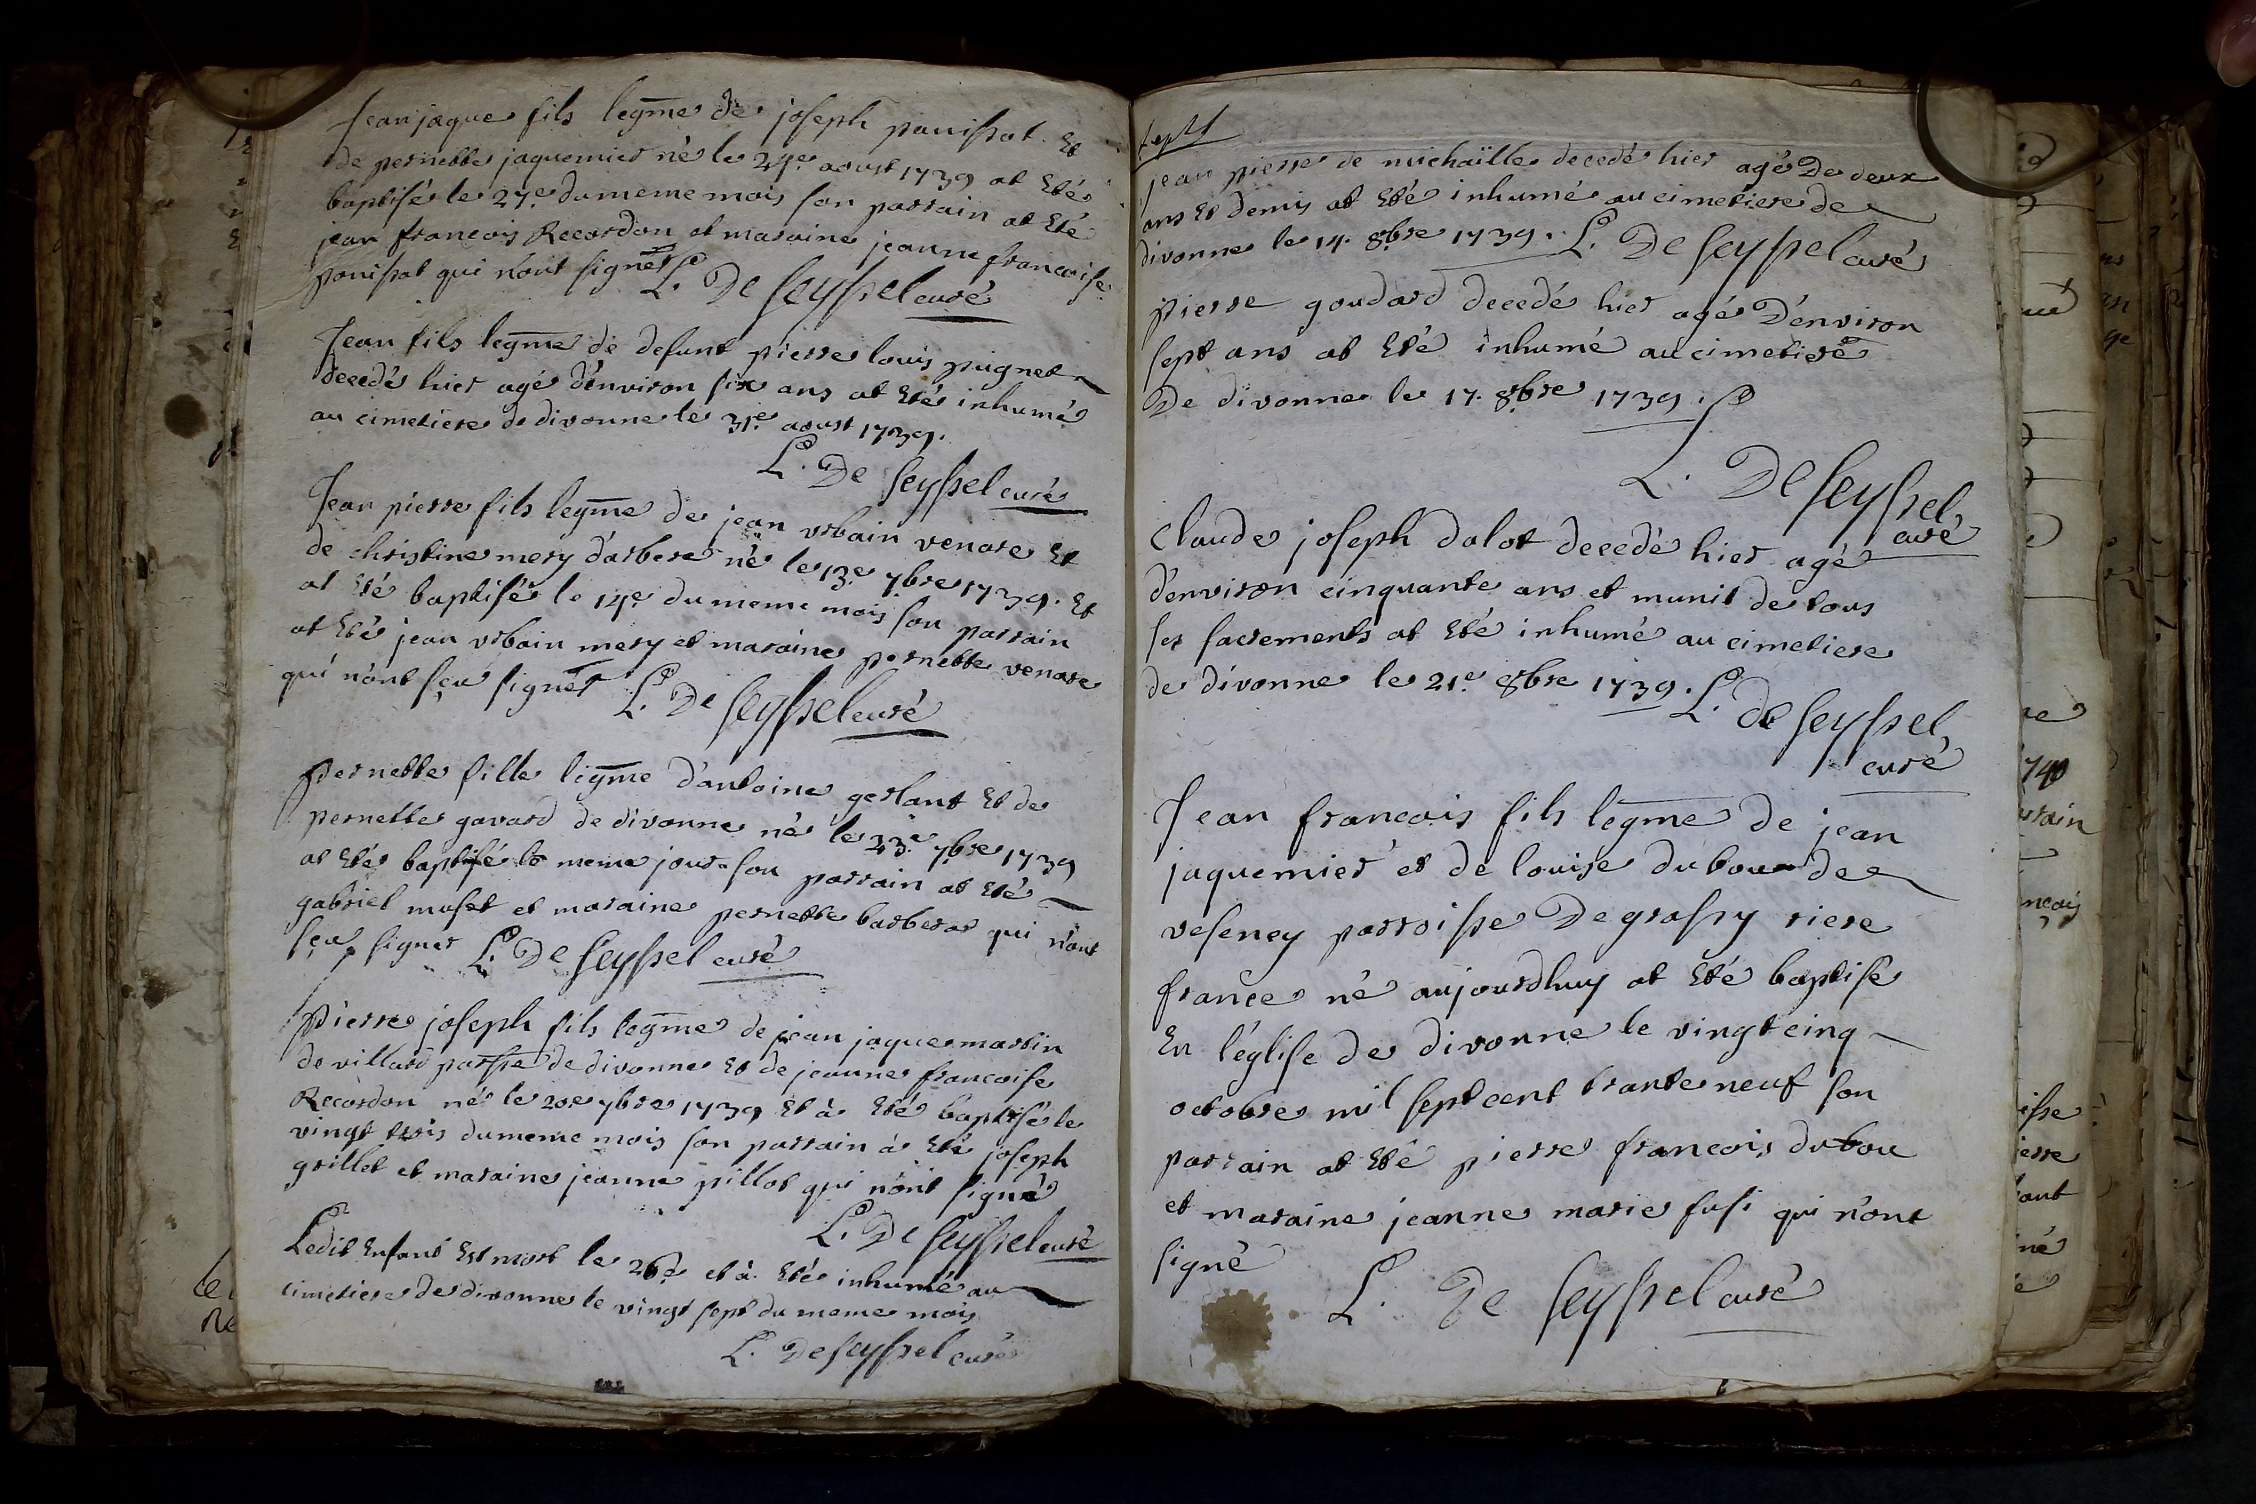 Jean jaque fils legme de joseph panissat Et
de pernette jaquemier né le 24e aoust 1739 at Eté
baptisé le 27e du meme mois son parrain at Eté
jean francois Recordon et maraine jeanne francoise
panissat qui n'ont signé L. De Seyssel curé
Jean fils legme de defunt pierre louis puignet
decedé hier agé d'environ six ans at Eté inhumé
au cimetiere de divonne le 31e aoust 1739.
L. De Seyssel curé
Jean pierre fils legme de jean urbain venare Et
de christine mery d'arbere né le 13e 7bre 1739. Et
at Eté baptisé le 14e du meme mois son parrain
at Eté jean urbain mery et maraine pernette venare
qui n'ont sçeu signer L. De Seyssel curé
Pernette fille ligme d'antoine gerlant Et de
pernette gavard de divonne né le 23e 7bre 1739
at Eté baptisé le meme jour son parrain at Eté
gabriel muset et maraine pernette barberat qui n'ont
sçeu signer L. De Seyssel curé
Pierre joseph fils legme de jean jaque martin
de villard parsse de divonne Et de jeanne francoise
Recordon né le 20e 7bre 1739 Et à Eté baptisé le
vingt trois du meme mois son parrain à Eté joseph
grillet et maraine jeanne pillot qui n'ont signé
L. De Seyssel curé
Ledit Enfant Est mort le 26e et à Eté inhumé au
cimetiere de divonne le vingt sept du meme mois
L. De Seyssel curé
sept
jean pierre de michaille decedé hier agé De deux
ans Et demis at Eté inhumé au cimetiere de
divonne le 14. 8bre 1739. L. De Seyssel curé
pierre goudard decedé hier agé D'environ
sept ans at Eté inhumé au cimetiere
De divonne le 17. 8bre 1739.
L. De Seyssel
curé
Claude joseph dalot decedé hier agé
d'environ cinquante ans et munit de tous
ses sacrements at Eté inhumé au cimetiere
de divonne le 21e 8bre 1739. L. de Seyssel
curé
Jean francois fils legme de jean
jaquemier et de louise dubou de
veseney parroisse De grassy riere
france né aujourdhuy at Eté baptisé
En l'église de divonne le vingt cinq
octobre mil sept cent trante neuf son
parrain at Eté pierre francois dubou
et maraine jeanne marie fusi qui n'ont
signé
L. De Seyssel curé